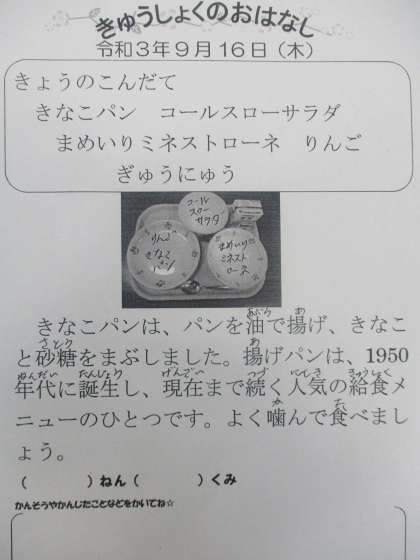 きゅうしょくのおはなし
令和3年9月16日(木)
きょうのこんだて
きなこパン コールスローサラダ
まめいりミネストローネ りんご
ぎゅうにゅう
コール
スロー
サラダ
りんご
きなこ
パン
まめいり
ミネスト
ローネ
きなこパンは、パンを油で揚げ、きなこ
と砂糖をまぶしました。揚げパンは、1950
年代に誕生し、現在まで続く人気の給食メ
ニューのひとつです。よく噛んで食べまし
ょう。
( )ねん( )くみ
かんそうやかんじたことなどをかいてね☆